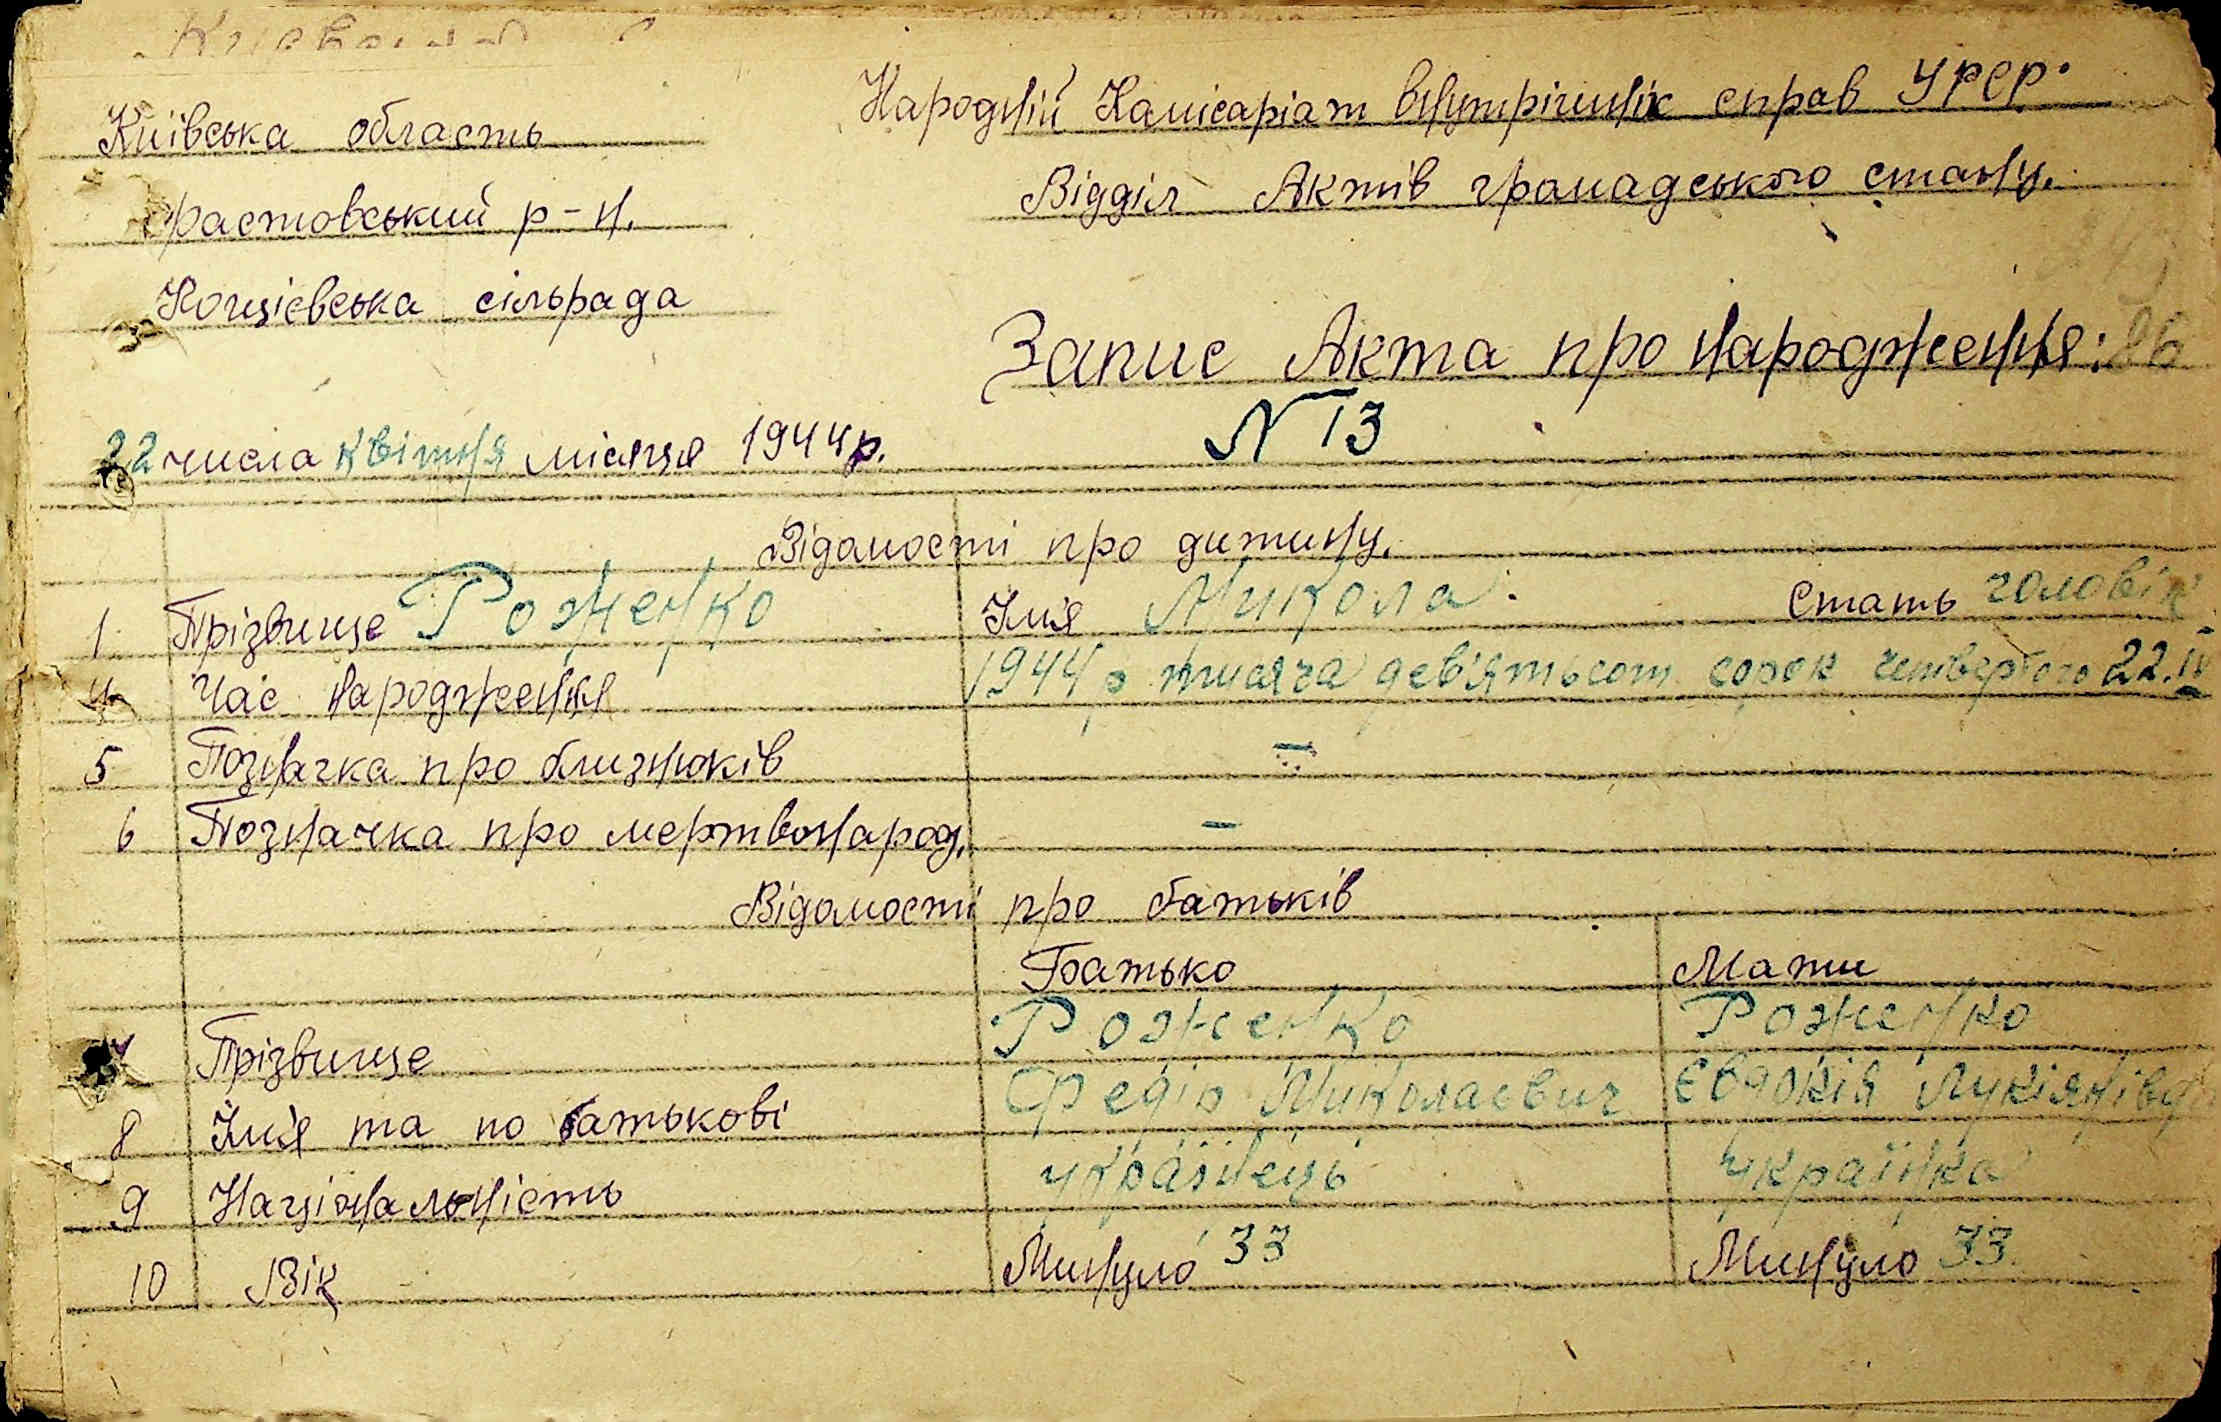 Київська область
Народній Комісаріат внутрішніх справ УРСР.
Фастовський р-н.
Відділ Актів громадського стану.
Кощієвська сільрада
Запис Акта про народження:
22 числа квітня місяця 1944 р.
N 13
Відомості про дитину.
1 Прізвище Роженко Ім'я Микола. Стать чоловік
4 Час народження 1944 р тисяча дев'ятьсот сорок четвертого 22.IV
5 Позначка про близнюків —
6 Позначка про мертвонарод. —
Відомості про батьків
Батько Мати
7 Прізвище Роженко Роженко
8 Ім'я та по батькові Федір Миколаєвич Євдокія Лукіянівна
9 Національність українець українка
10 Вік Минуло 33 Минуло 33.